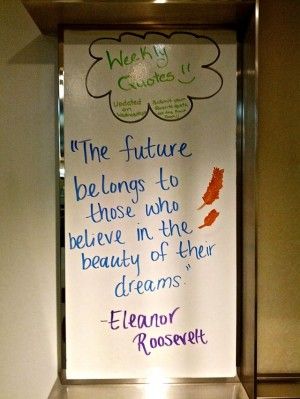 Weekly
Quotes!!
Updated
on
Submit your
favorite quote
"The future
belongs to
those who
believe in the
beauty of their
dreams."
-Eleanor
Roosevelt